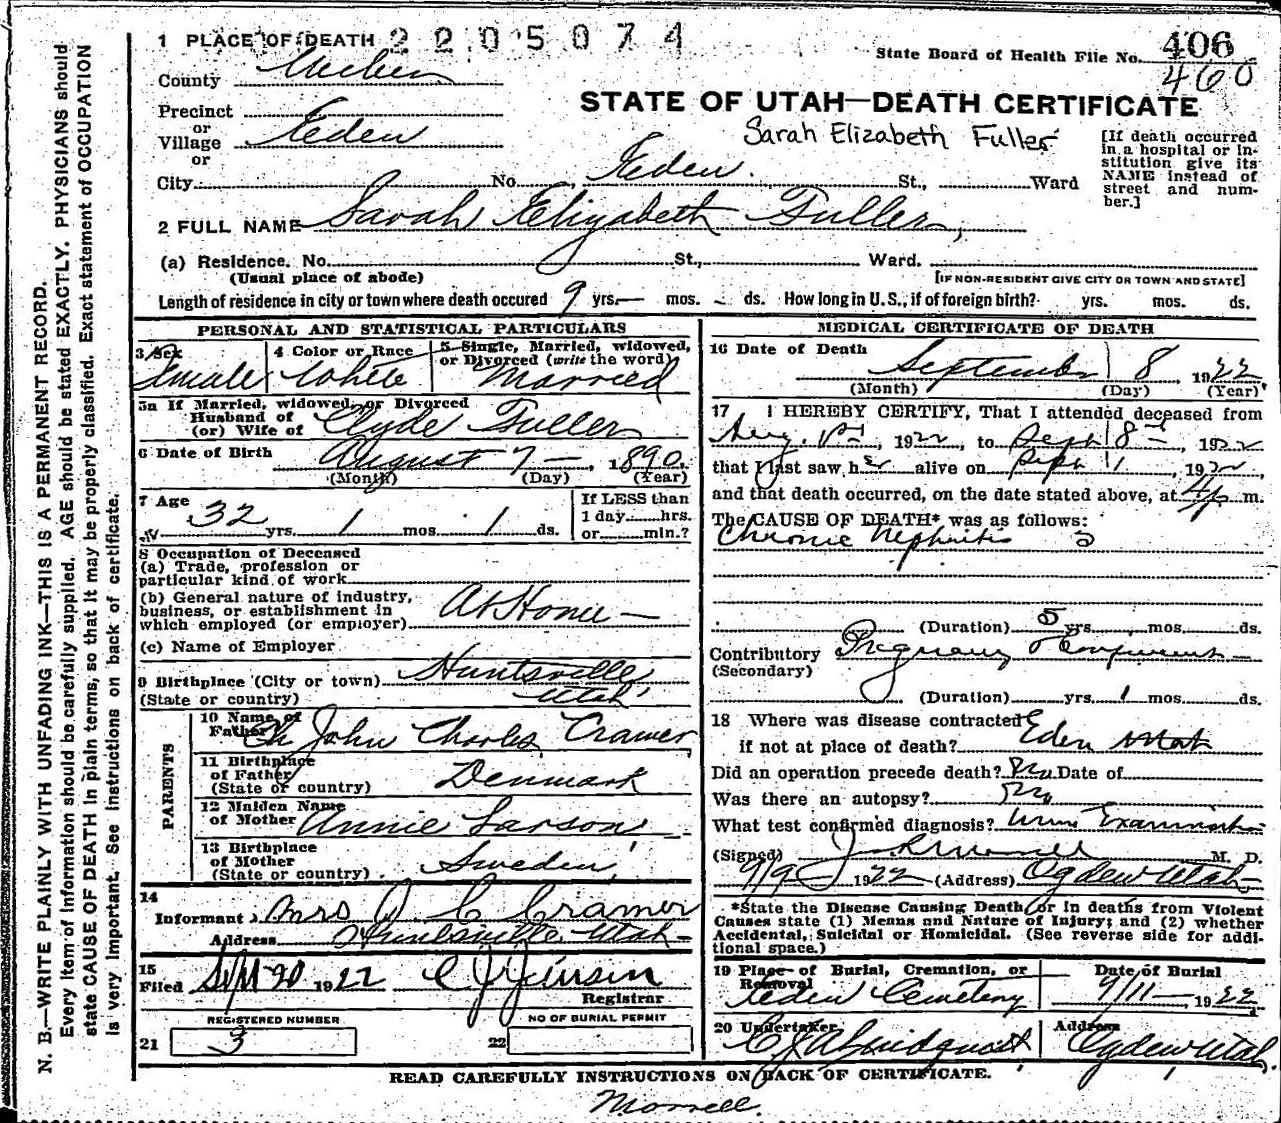 1 PLACE OF DEATH 2205074
State Board of Health File No. 406
460
County Weber
STATE OF UTAH—DEATH CERTIFICATE
Precinct
or
Village Eden
or
Sarah Elizabeth Fuller
[If death occurred in a hospital or institution give its NAME instead of street and number.]
City. No. Eden. St., Ward
2 FULL NAME Sarah Elizabeth Fuller,
(a) Residence. No. St., Ward.
(Usual place of abode) [IF NON-RESIDENT GIVE CITY OR TOWN AND STATE]
Length of residence in city or town where death occured 9 yrs. — mos. - ds. How long in U. S., if of foreign birth? yrs. mos. ds.
PERSONAL AND STATISTICAL PARTICULARS
3 Sex Female
4 Color or Race White
5 Single, Married, widowed, or Divorced (write the word) Married
5a If Married, widowed, or Divorced
Husband of
(or) Wife of Clyde Fuller
6 Date of Birth August 7 — , 1890.
(Month) (Day) (Year)
7 Age 32 yrs. 1 mos. 1 ds.
If LESS than
1 day......hrs.
or......min.?
8 Occupation of Deceased
(a) Trade, profession or
particular kind of work
(b) General nature of industry,
business, or establishment in
which employed (or employer) At Home —
(c) Name of Employer
9 Birthplace (City or town) Huntsville
(State or country) Utah
PARENTS
10 Name of Father John Charles Cramer
11 Birthplace
of Father
(State or country) Denmark
12 Maiden Name
of Mother Annie Larson
13 Birthplace
of Mother
(State or country) Sweden,
14
Informant Mrs J C Cramer
Address Huntsville Utah —
15
Filed Sept 20 1922 C J Jensen
Registrar
REGISTERED NUMBER NO OF BURIAL PERMIT
21 3 22
MEDICAL CERTIFICATE OF DEATH
16 Date of Death September 8 1922
(Month) (Day) (Year)
17 I HEREBY CERTIFY, That I attended deceased from
Aug. 1st, 1922, to Sept 8th, 1922
that I last saw her alive on Sept 1922,
and that death occurred, on the date stated above, at 4p m.
The CAUSE OF DEATH* was as follows:
Chronic Nephritis
(Duration) 5 yrs. mos. ds.
Contributory Pregnancy & Confinement —
(Secondary)
(Duration) yrs. 1 mos. ds.
18 Where was disease contracted
if not at place of death? Eden Utah
Did an operation precede death? No Date of
Was there an autopsy? No
What test confirmed diagnosis? Urine Examination
(Signed) Morrell M. D.
9/9 1922 (Address) Ogden Utah
*State the Disease Causing Death, or in deaths from Violent
Causes state (1) Means and Nature of Injury; and (2) whether
Accidental, Suicidal or Homicidal. (See reverse side for addi-
tional space.)
19 Place of Burial, Cremation, or
Removal Eden Cemetery
Date of Burial 9/11 — 1922
20 Undertaker C J A Lindquist
Address Ogden Utah.
READ CAREFULLY INSTRUCTIONS ON BACK OF CERTIFICATE.
Morrell.
N. B.—WRITE PLAINLY WITH UNFADING INK—THIS IS A PERMANENT RECORD.
Every item of information should be carefully supplied. AGE should be stated EXACTLY. PHYSICIANS should
state CAUSE OF DEATH in plain terms, so that it may be properly classified. Exact statement of OCCUPATION
is very important. See instructions on back of certificate.